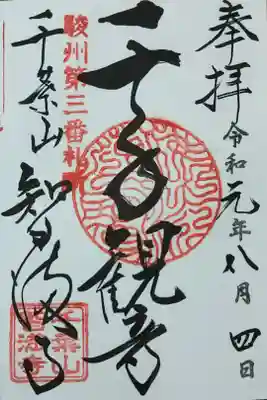 奉拝
令和元年八月四日
駿州第三番札所
千手観音
千葉山 智満寺
千葉山
智満寺